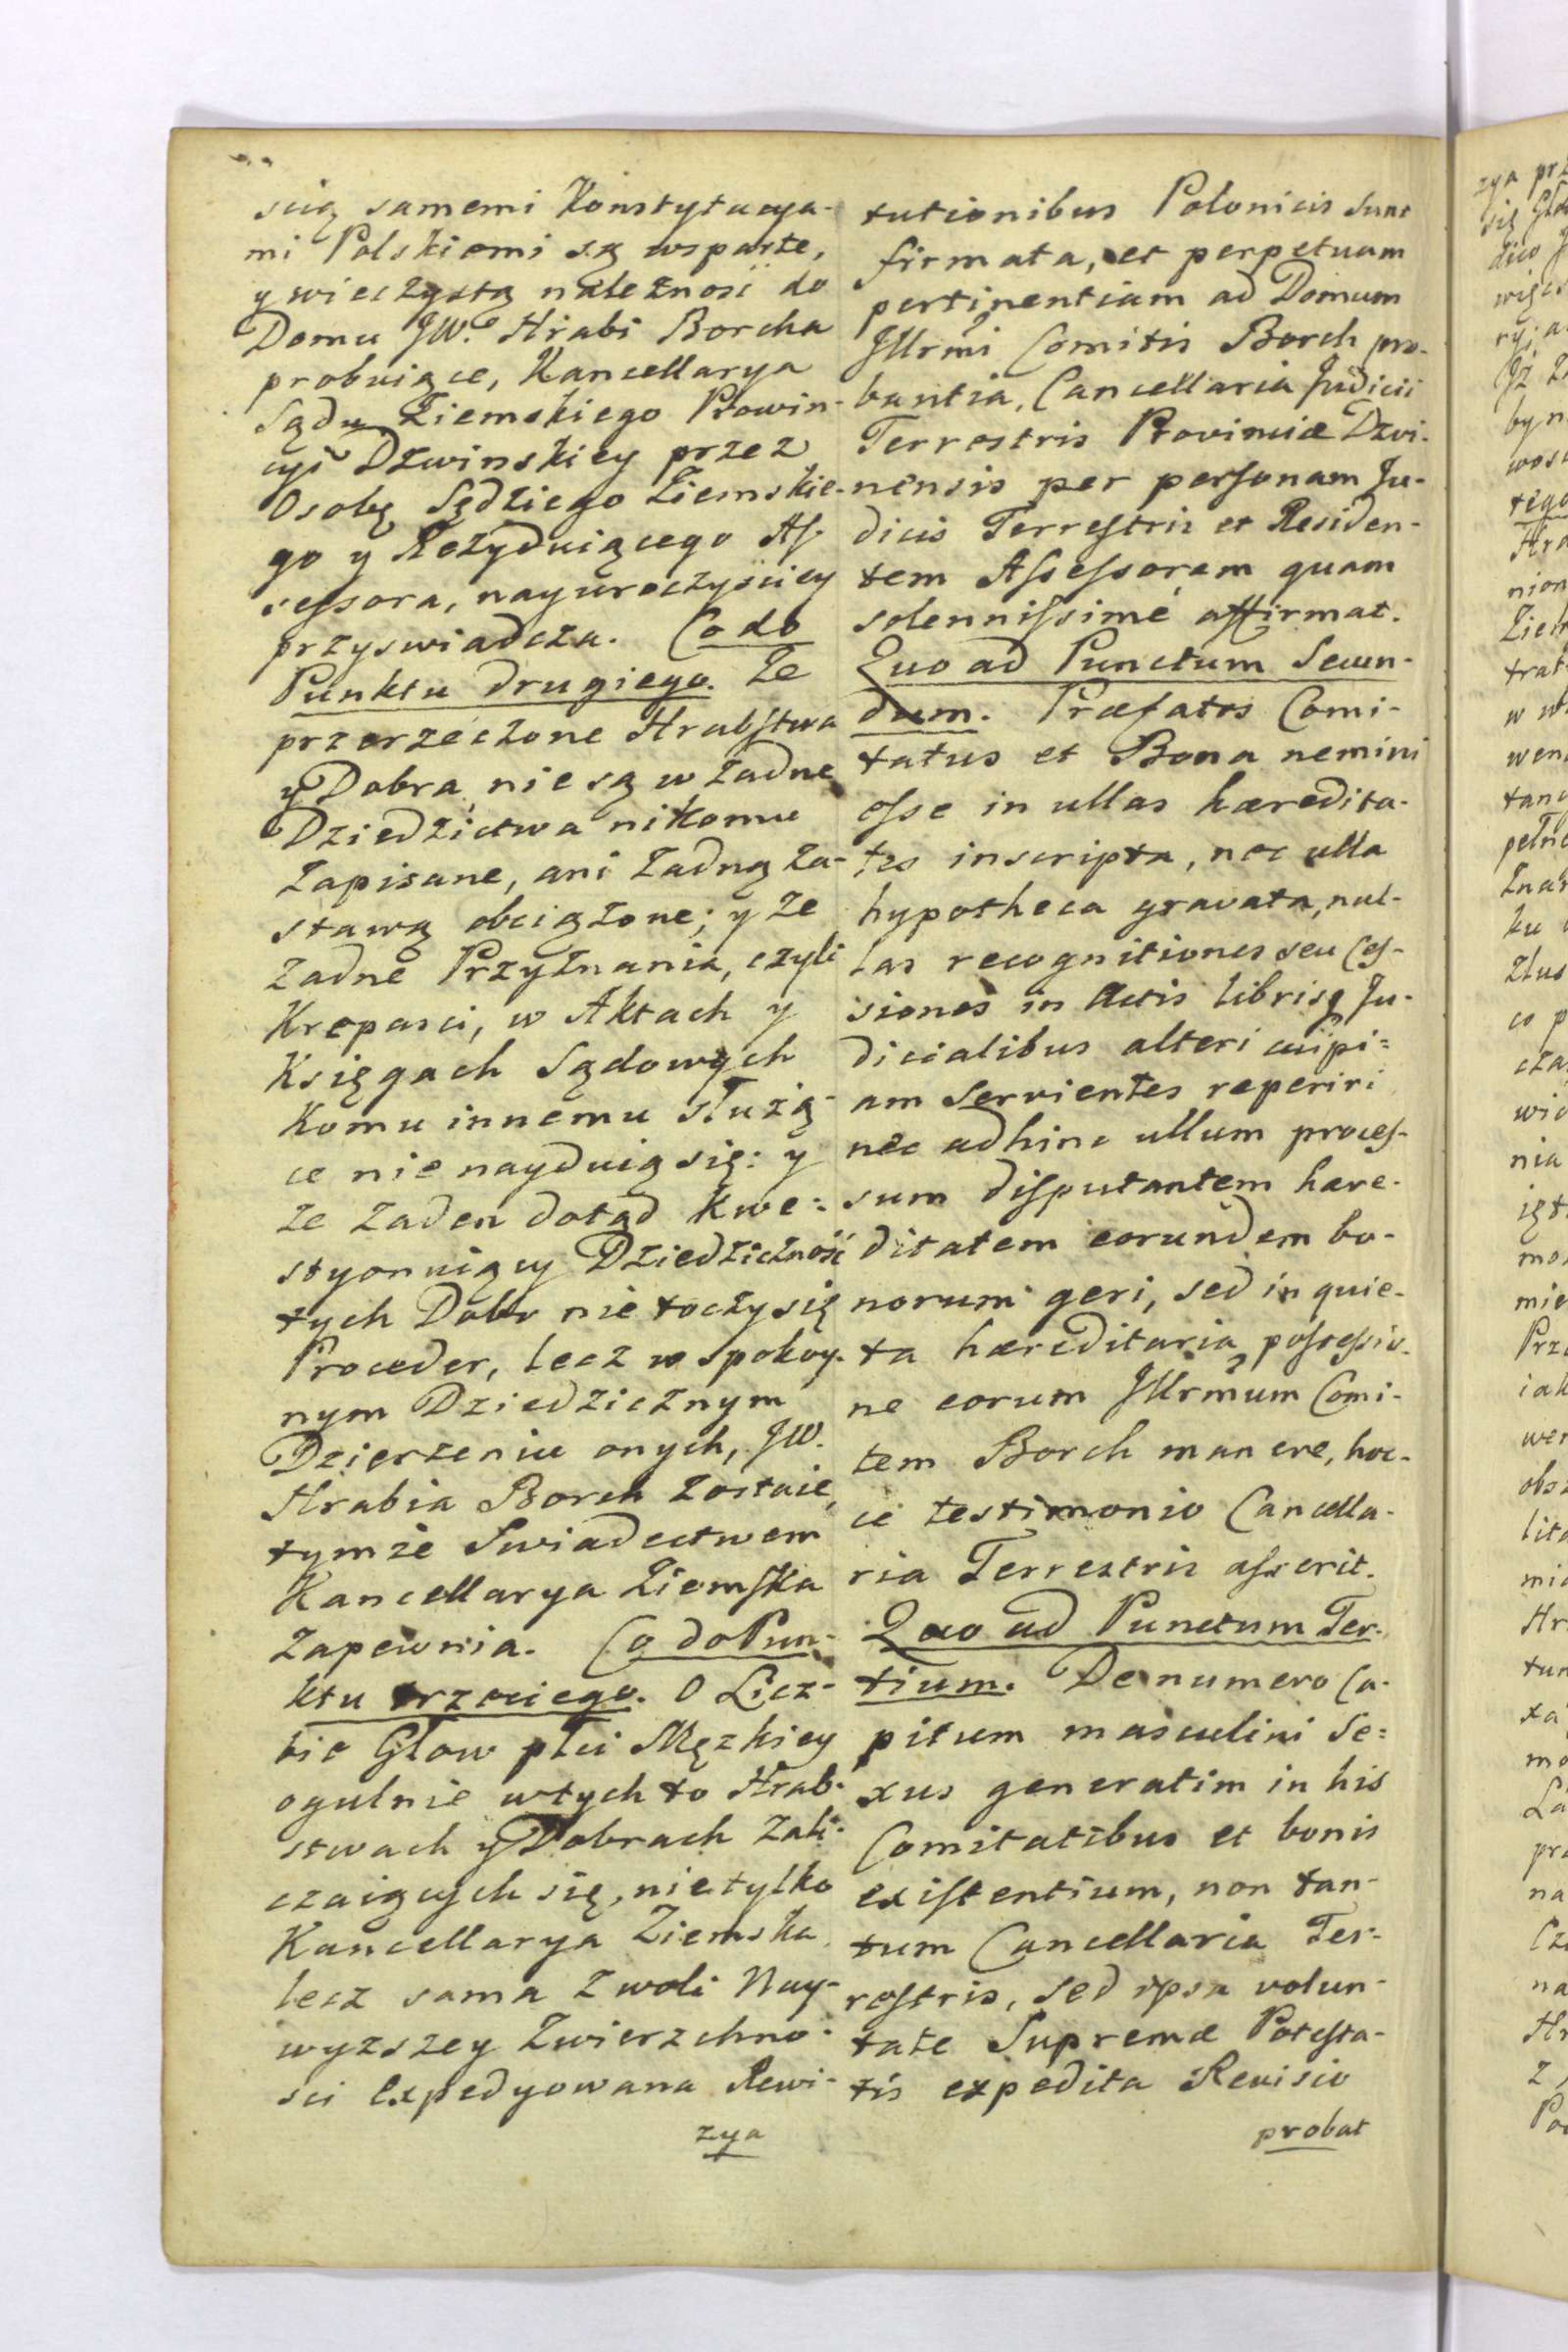 scią samemi Konstytucya-
mi Polskiemi są wsparte,
y wieczystą należność do
Domu JW.º Hrabi Borcha
probuiące, Kancellarya
Sądu Ziemskiego Prowin-
cyi Dzwinskiey przez
Osobę Sędziego Ziemskie-
go y Rezyduiącego As-
sessora, nayuroczyściey
przyswiadcza. Co do
Punktu drugiego. Ze
przerzeczone Hrabstwa
y Dobra, nie są w żadne
Dziedzictwa nikomu
Zapisane, ani żadną Za-
stawą obciążone; y że
żadne Przyznania, czyli
Krepasci, w Aktach y
Księgach Sądowych
Komu innemu służą-
ce nie nayduią się: y
że żaden dotąd kwe:
styonuiący Dziedziczność
tych Dobr nie toczy się
Proceder, lecz w spokoy-
nym Dziedzicznym
Dzierżeniu onych, JW.
Hrabia Borch zostaie,
tymże Swiadectwem
Kancellarya Ziemska
Zapewnia. Co do Pun-
ktu trzeciego. O Licz-
bie Głow płci Męzkiey
ogulnie w tych to Hrab-
stwach y Dobrach Zali-
czaiących się, nie tylko
Kancellarya Ziemska
lecz sama z woli Nay-
wyższey Zwierzchno-
sci Expedyowana Rewi-
zya
tutionibus Polonicis sunt
firmata, et perpetuam
pertinentiam ad Domum
Illrmi Comitis Borch pro-
bantia, Cancellaria Judicii
Terrestris Provinciæ Dzvi-
nensis per personam Ju-
dicis Terrestris et Residen-
tem Assessorem quam
solennissimé affirmat.
Quo ad Punctum Secun-
dum. Præfatos Comi-
tatus et Bona nemini
esse in ullas hæredita-
tes inscripta, nec ulla
hypotheca gravata, nul-
las recognitiones seu Ces-
siones in Actis librisq Ju-
dicialibus alteri cuipi=
am servientes reperiri
nec adhinc ullum proces-
sum disputantem hære-
ditatem eorundem bo-
norum geri, sed in quie-
ta hæreditaria possessio-
ne eorum Illrmum Comi-
tem Borch manere, hoc-
ce testimonio Cancella-
ria Terrestris asserit.
Quo ad Punctum Ter-
tium. De numero Ca-
pitum masculini Se=
xus generatim in his
Comitatibus et bonis
existentium, non tan-
tum Cancellaria Ter-
restris, sed ipsa volun-
tate Supremæ Potesta-
tis expedita Revisio
probat